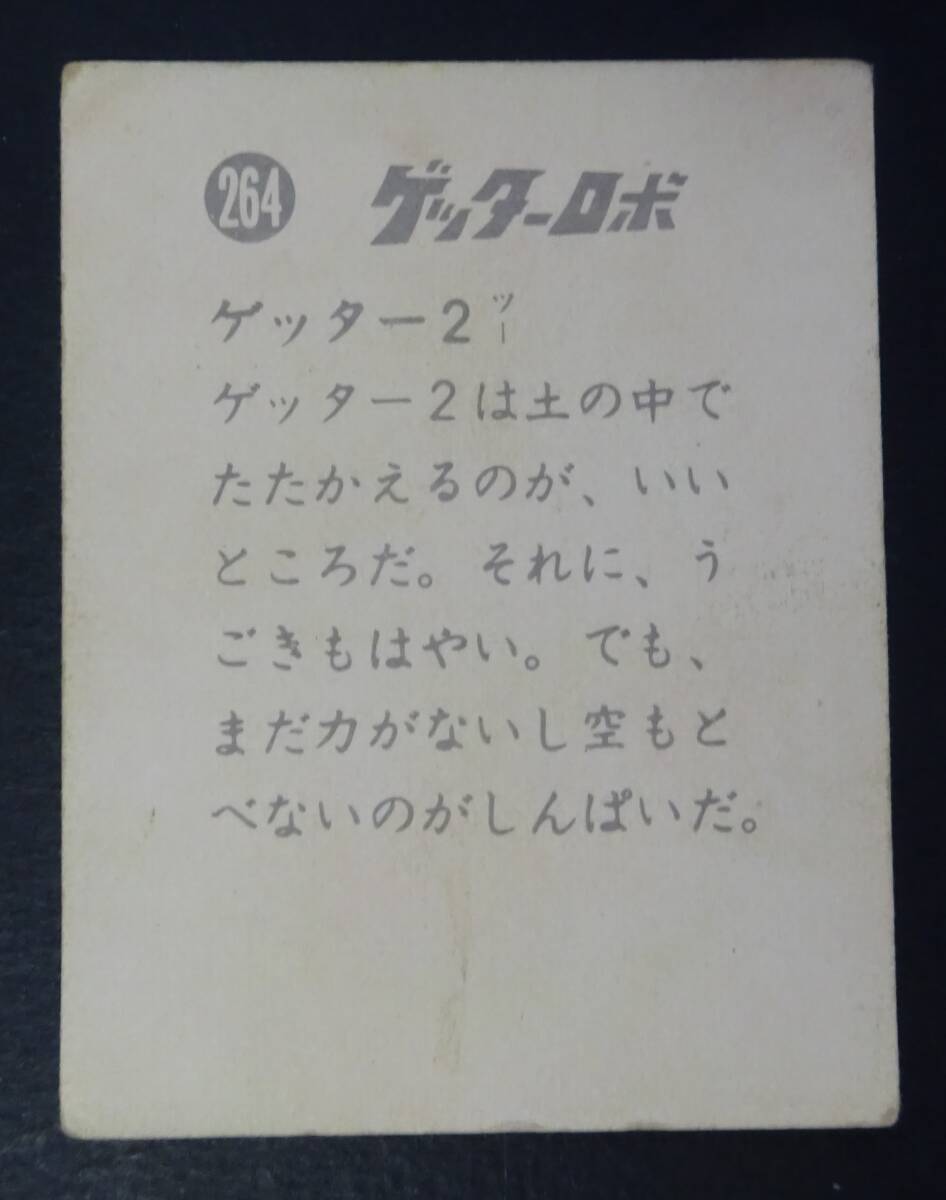 264 ゲッターロボ
ゲッター2ツー
ゲッター2は土の中で
たたかえるのが、いい
ところだ。それに、う
ごきもはやい。でも、
まだ力がないし空もと
べないのがしんぱいだ。